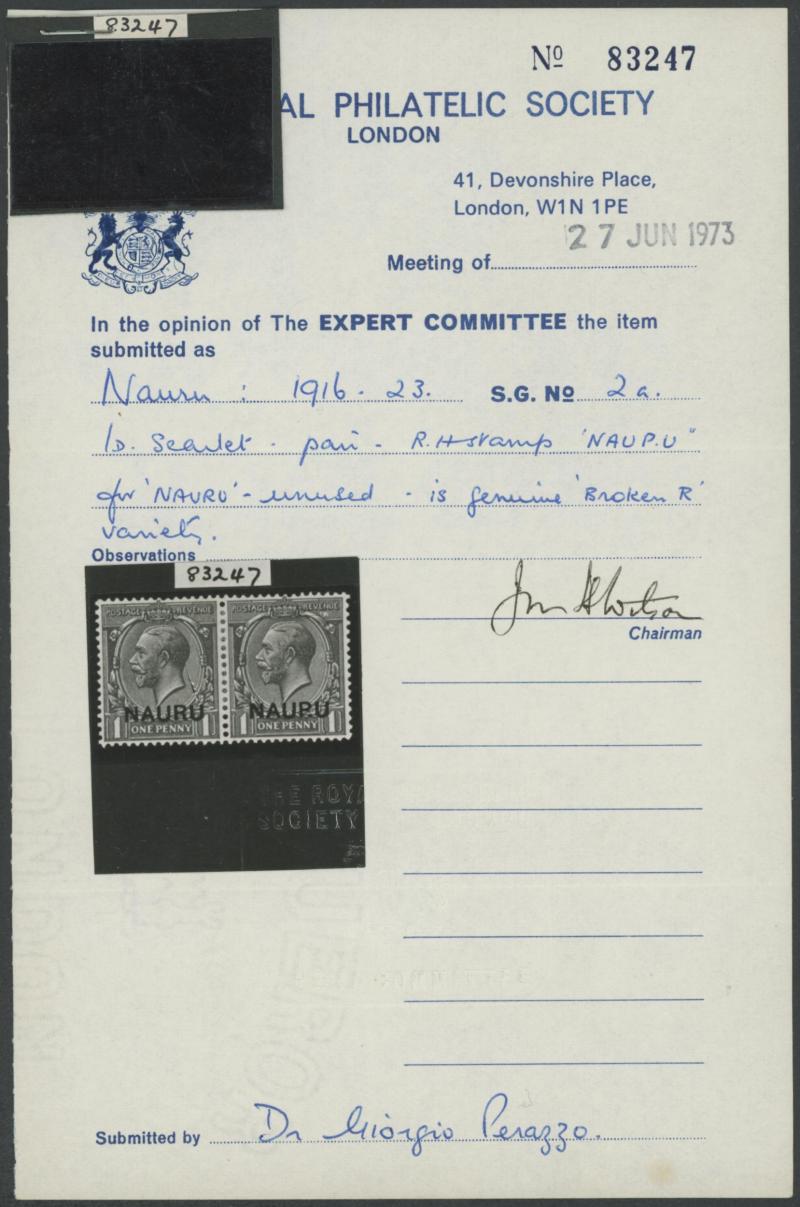 83247
Nº 83247
AL PHILATELIC SOCIETY
LONDON
41, Devonshire Place,
London, W1N 1PE
27 JUN 1973
Meeting of
In the opinion of The EXPERT COMMITTEE the item
submitted as
Nauru : 1916-23. S.G. Nº 2a.
1D. Scarlet - pair - R.H stamp 'NAUP.U"
for 'NAURU' - unused - is genuine 'Broken R'
variety.
Observations
83247
Chairman
POSTAGE REVENUE POSTAGE REVENUE
NAURU NAUPU
1 ONE PENNY 1 1 ONE PENNY 1
THE ROYA
SOCIETY
Submitted by Dr Giorgio Perazzo.